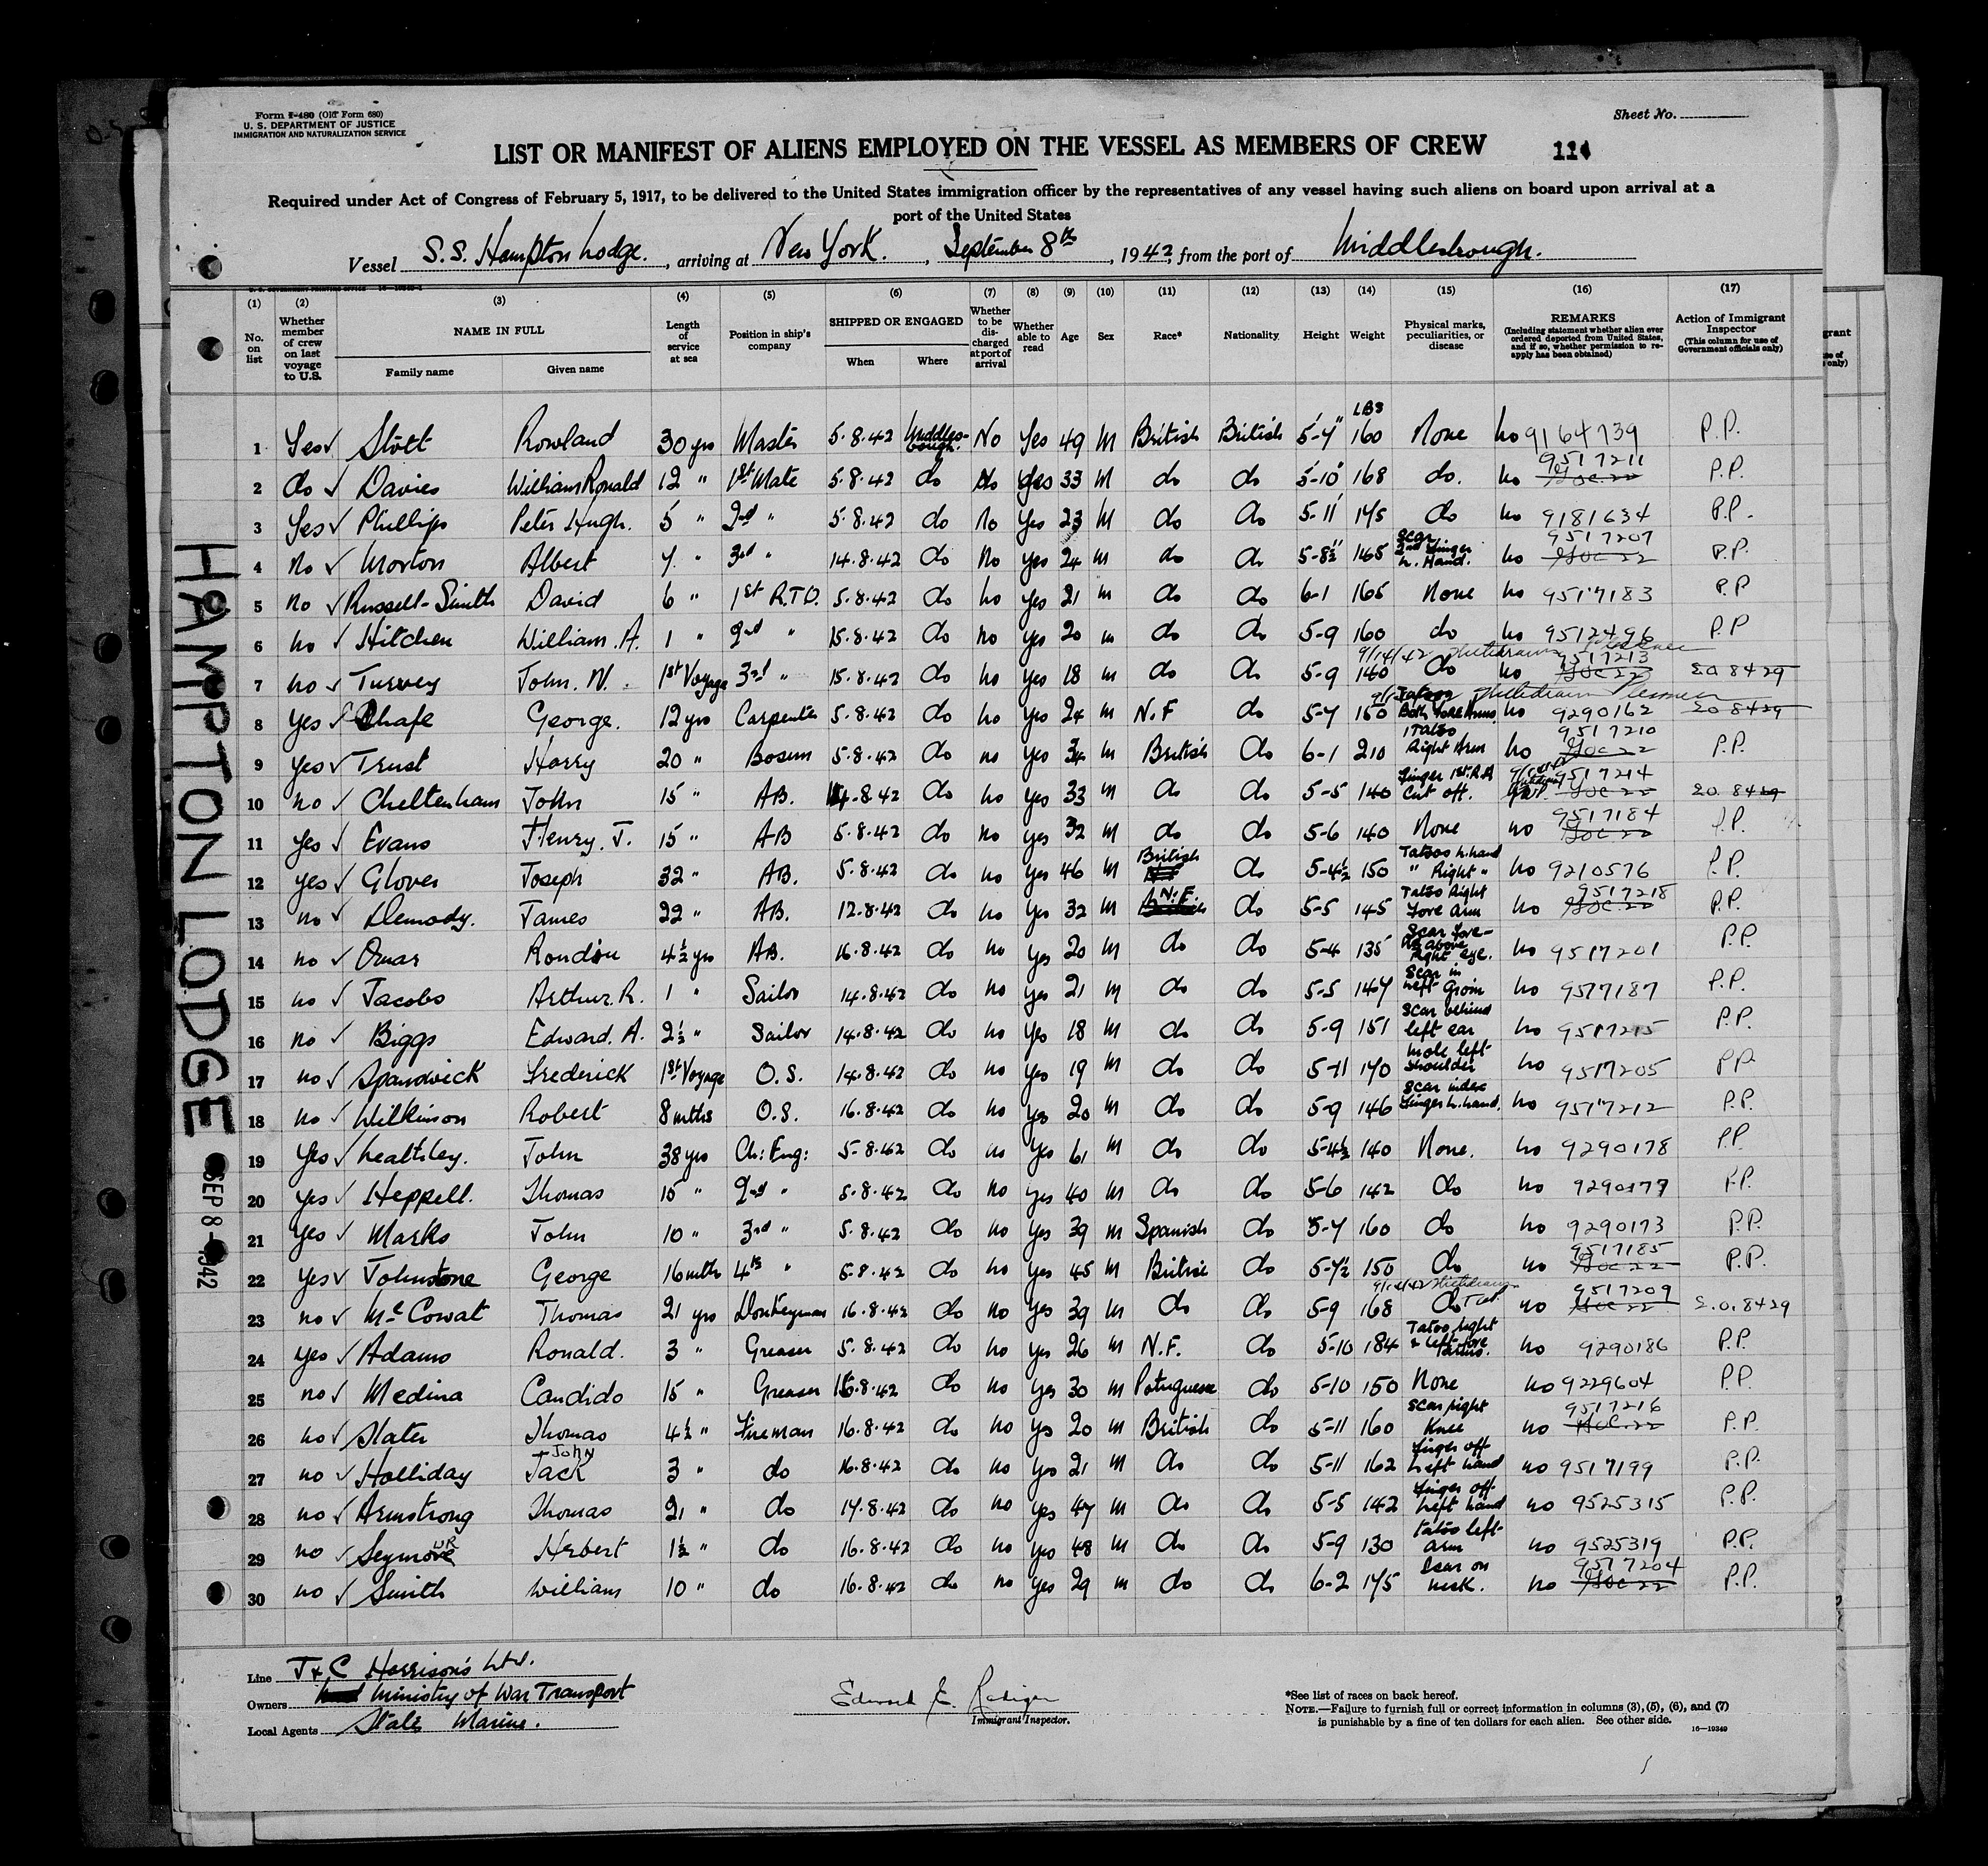 Form I-480 (Old Form 680)
U. S. DEPARTMENT OF JUSTICE
IMMIGRATION AND NATURALIZATION SERVICE
Sheet No.
LIST OR MANIFEST OF ALIENS EMPLOYED ON THE VESSEL AS MEMBERS OF CREW 114
Required under Act of Congress of February 5, 1917, to be delivered to the United States immigration officer by the representatives of any vessel having such aliens on board upon arrival at a
port of the United States
Vessel S.S. Hampton Lodge. , arriving at New York. , September 8th , 1942, from the port of Middlesbrough.
(1) (2) (3) (4) (5) (6) (7) (8) (9) (10) (11) (12) (13) (14) (15) (16) (17)
No. on list Whether member of crew on last voyage to U.S. NAME IN FULL Family name Given name Length of service at sea Position in ship's company SHIPPED OR ENGAGED When Where Whether to be discharged at port of arrival Whether able to read Age Sex Race* Nationality Height Weight Physical marks, peculiarities, or disease REMARKS (Including statement whether alien ever ordered deported from United States, and if so, whether permission to reapply has been obtained) Action of Immigrant Inspector (This column for use of Government officials only)
LBS
1 Yes ✓ Stott Rowland 30 yrs Master 5.8.42 Middlesbough. No Yes 49 M British British 5-7" 160 None no 9164739 P.P.
2 do ✓ Davies William Ronald 12 " 1st Mate 5.8.42 do No Yes 33 M do do 5-10 168 do. no 9517211 P.P.
3 Yes ✓ Phillips Peter Hugh. 5 " 2nd " 5.8.42 do No Yes 23 M do do 5-11 175 do no 9181634 P.P.
4 No ✓ Morton Albert 7 " 3rd " 14.8.42 do No Yes 24 m do do 5-8½" 165 Scar 2nd Finger L. Hand. no 9517207 P.P.
5 no ✓ Russell-Smith David 6 " 1st R.T.O. 5.8.42 do no Yes 21 m do do 6-1 165 None no 9517183 P.P
6 no ✓ Hitchen William. A. 1 " 2nd " 15.8.42 do no Yes 20 m do do 5-9 160 do no 9512496 P.P
9/14/42 Withdrawn
7 no ✓ Turvey John. N. 1st Voyage 3rd " 15.8.42 do no Yes 18 m do do 5-9 140 do no 9517213 20 8429
Withdrawn
8 Yes ✓ Chafe George. 12 yrs Carpenter 5.8.42 do no Yes 24 m N.F do 5-7 150 Tatoo Both Fore Arms. no 9290162 20 8429
9 Yes ✓ Trust Harry 20 " Bosun 5.8.42 do no Yes 34 m British do 6-1 210 Tatoo Right Arm no 9517210 P.P.
10 no ✓ Cheltenham John 15 " AB. 14.8.42 do no Yes 33 m do do 5-5 140 Finger 1st. R.H Cut off. 9517214 20.8429
11 Yes ✓ Evans Henry. J. 15 " AB 5.8.42 do no Yes 32 m do do 5-6 140 None no 9517184 P.P.
12 Yes ✓ Glover Joseph 32 " AB. 5.8.42 do no Yes 46 m British do 5-4½ 150 Tatoos L. hand " Right " no 9210576 P.P.
13 no ✓ Demody. James 22 " AB. 12.8.42 do no Yes 32 m N.F. do 5-5 145 Tatoo Right Fore arm no 9517218 P.P.
14 no ✓ Omar Rondiu 4½ yrs AB. 16.8.42 do no Yes 20 m do do 5-4 135 Scar Fore- above right eye. no 9517201 P.P.
15 no ✓ Jacobs Arthur. R. 1 " Sailor 14.8.42 do no Yes 21 m do do 5-5 147 Scar in Left Groin no 9517187 P.P.
16 no ✓ Biggs Edward. A. 2½ " Sailor 14.8.42 do no Yes 18 m do do 5-9 151 Scar behind left ear no 9517215 P.P.
17 no ✓ Spandwick Frederick 1st Voyage O.S. 14.8.42 do no Yes 19 m do do 5-11 170 mole left shoulder no 9517205 P.P.
18 no ✓ Wilkinson Robert 8 mths O.S. 16.8.42 do no Yes 20 m do do 5-9 146 Scar index Finger L. hand. no 9517212 P.P.
19 Yes ✓ Leathley. John 38 yrs Ch: Eng: 5-8.42 do no Yes 61 m do do 5-4½ 140 None. no 9290178 P.P.
20 Yes ✓ Heppell. Thomas 15 " 2nd " 5.8.42 do no Yes 40 m do do 5-6 142 do no 9290177 P.P.
21 Yes ✓ Marks John 10 " 3rd " 5.8.42 do no Yes 39 m Spanish do 5-7 160 do no 9290173 P.P.
22 Yes ✓ Johnstone George 16 mths 4th " 5-8.42 do no Yes 45 m British do 5-7½ 150 do no 9517185 P.P.
9/14/42 Withdrawn
23 no ✓ Mc Cowat Thomas 21 yrs Donkeyman 16.8.42 do no Yes 39 m do do 5-9 168 do no 9517209 2.0.8429
24 Yes ✓ Adams Ronald. 3 " Greaser 5.8.42 do no Yes 26 m N.F. do 5-10 184 Tatoo Right & Left Fore Arms. no 9290186 P.P.
25 no ✓ Medina Candido 15 " Greaser 15.8.42 do no Yes 30 m Potuguese do 5-10 150 None no 9229604 P.P.
26 no ✓ Slater Thomas 4½ " Fireman 16.8.42 do no Yes 20 m British do 5-11 160 Scar right Knee no 9517216 P.P.
27 no ✓ Holliday + John Jack 3 " do 16.8.42 do no Yes 21 m do do 5-11 162 Finger off Left hand no 9517199 P.P.
28 no ✓ Armstrong Thomas 21 " do 17.8.42 do no Yes 47 m do do 5-5 142 Finger off Left hand no 9525315 P.P.
29 no ✓ Seymour Herbert 1½ " do 16.8.42 do no Yes 48 m do do 5-9 130 tatoo left arm no 9525319 P.P.
30 no ✓ Smith William 10 " do 16.8.42 do no Yes 29 m do do 6-2 175 Scar on neck. no 9517204 P.P.
HAMPTON LODGE
SEP 8 - 1942
Line T & C Harrison's Ltd.
Owners Ministry of War Transport
Local Agents States Marine.
Edward E.
Immigrant Inspector.
*See list of races on back hereof.
NOTE.—Failure to furnish full or correct information in columns (3), (5), (6), and (7)
is punishable by a fine of ten dollars for each alien. See other side. 16—19349